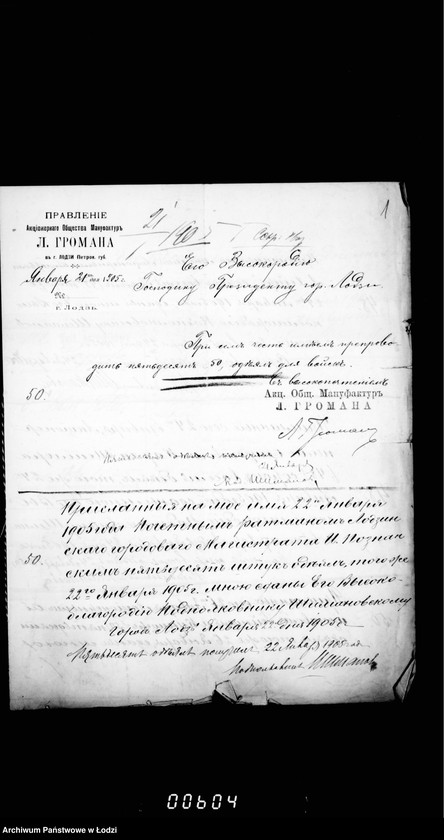 1
ПРАВЛЕНІЕ
Акціонернаго Общества Мануфактуръ
Л. ГРОМАНА
въ г. ЛОДЗИ Петрок. губ.
21/1 1905
Января 21 дня 1905 г.
г. Лодзь.
Его Высокородію
Господину Президенту гор. Лодзи.
При семъ честь имѣемъ препрово-
дить пятьдесятъ 50, одѣялъ для войскъ.
съ высокопочтеніемъ
50.
Акц. Общ. Мануфактуръ
Л. ГРОМАНА
Л Громанъ
Присланныя на мое имя 22го Января
1905 года Почетнымъ ратманомъ Лодзин
скаго городоваго Магистрата И. Познан
скимъ пятьдесятъ штукъ одѣялъ, того-же
50.
22го Января 1905 г. мною сданы Его Высоко-
благородію Подполковнику Шешпановскому
Городъ Лодзь Января 22го дня 1905 г.
Пятьдесятъ одѣялъ получилъ 22 Января 1905 года
Подполковникъ
00604
Archiwum Państwowe w Łodzi